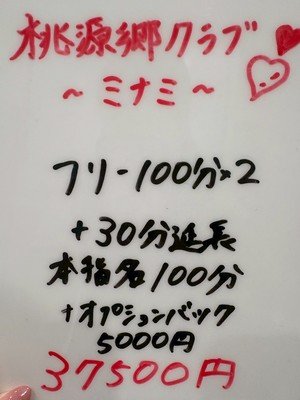 桃源郷クラブ
~ミナミ~
フリー100分×2
+30分延長
本指名100分
+オプションバック
5000円
37500円